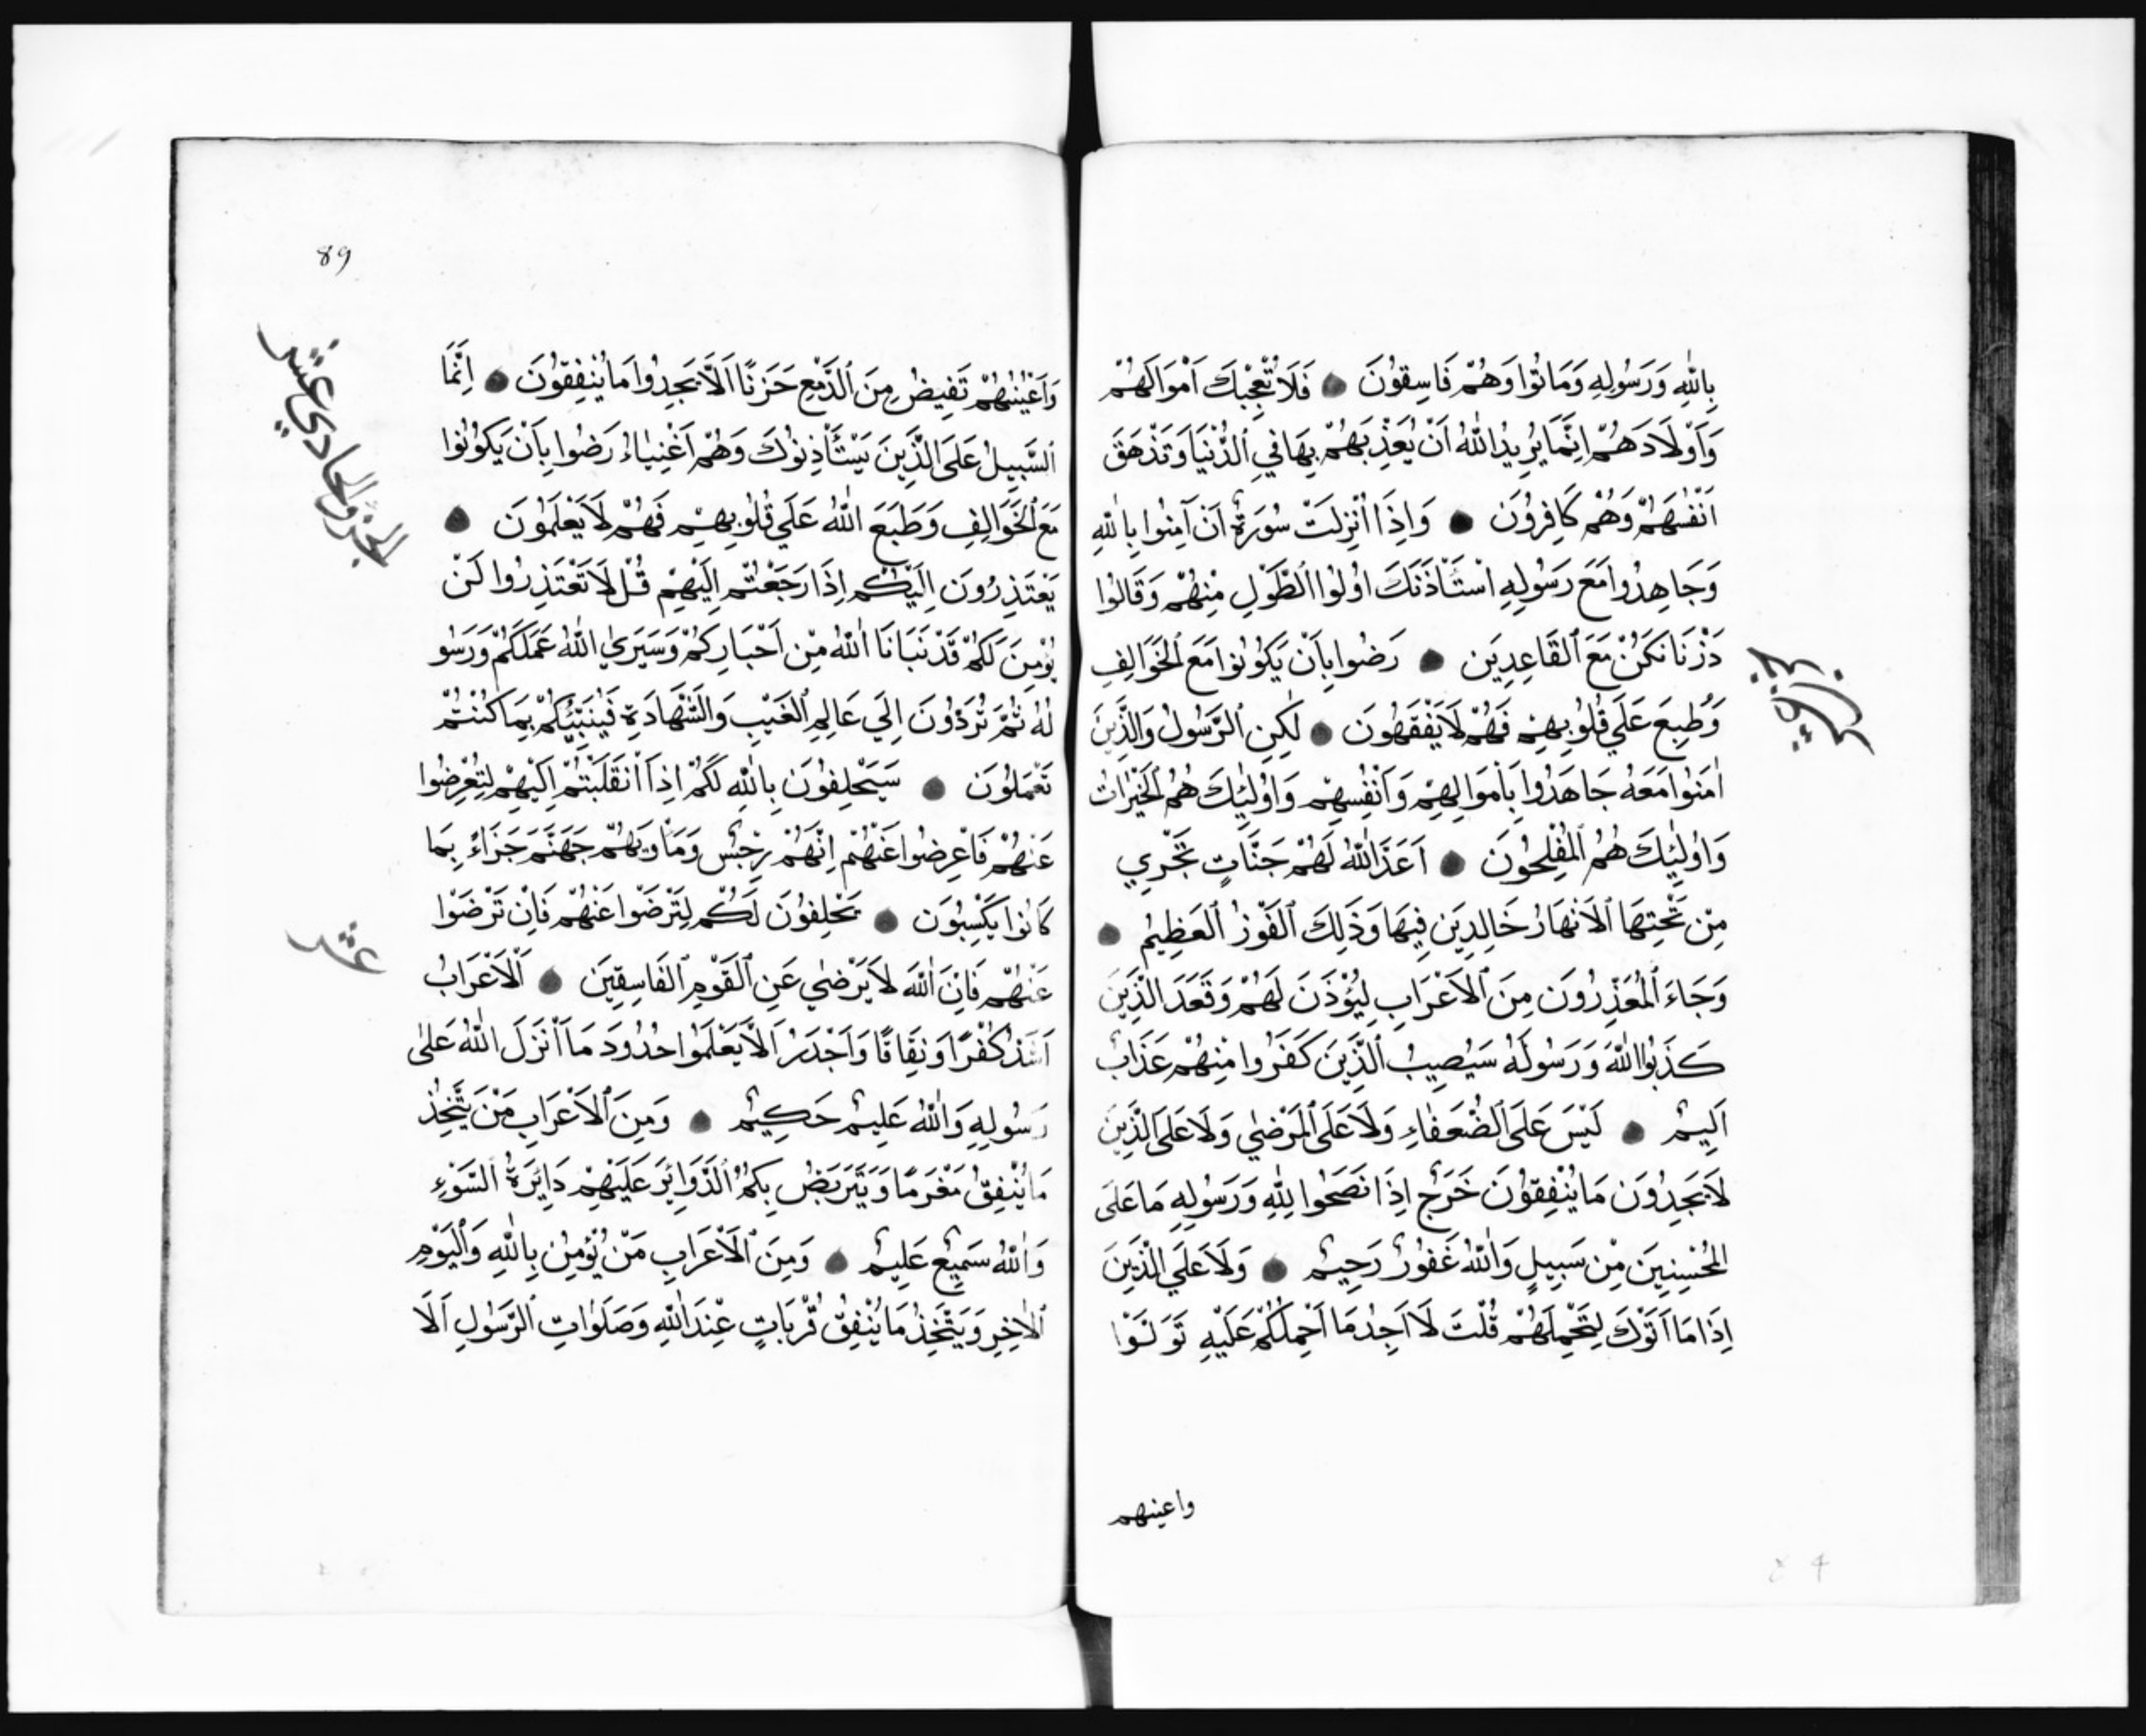 بِاللّٰهِ وَرَسُولِهِ وَمَاتُوا وَهُمْ فَاسِقُونَ فَلَا تُعْجِبْكَ اَمْوَالُهُمْ
وَاَوْلَادَهُمْ اِنَّمَا يُرِيدُ اللّٰهُ اَنْ يُعَذِّبَهُمْ بِهَا فِي الدُّنْيَا وَتَذْهَقَ
اَنْفُسَهُمْ وَهُمْ كَافِرُونَ وَاِذَا اُنْزِلَتْ سُورَةٌ اَنْ آمِنُوا بِاللّٰهِ
وَجَاهِدُوا مَعَ رَسُولِهِ اسْتَأْذَنَكَ اُولُوا الطَّوْلِ مِنْهُمْ وَقَالُوا
ذَرْنَا نَكُنْ مَعَ الْقَاعِدِينَ رَضُوا بِاَنْ يَكُونُوا مَعَ الْخَوَالِفِ
وَطُبِعَ عَلَي قُلُوبِهِمْ فَهُمْ لَا يَفْقَهُونَ لٰكِنِ الرَّسُولُ وَالَّذِينَ
اٰمَنُوا مَعَهُ جَاهَدُوا بِاَمْوَالِهِمْ وَاَنْفُسِهِمْ وَاُولٰئِكَ هُمُ الْخَيْرَاتُ
وَاُولٰئِكَ هُمُ الْمُفْلِحُونَ اَعَدَّ اللّٰهُ لَهُمْ جَنَّاتٍ تَجْرِي
مِنْ تَحْتِهَا الْاَنْهَارُ خَالِدِينَ فِيهَا وَذَلِكَ الْفَوْزُ الْعَظِيمُ
وَجَاءَ الْمُعَذِّرُونَ مِنَ الْاَعْرَابِ لِيُؤْذَنَ لَهُمْ وَقَعَدَ الَّذِينَ
كَذَبُوا اللّٰهَ وَرَسُولَهُ سَيُصِيبُ الَّذِينَ كَفَرُوا مِنْهُمْ عَذَابٌ
اَلِيمٌ لَيْسَ عَلَى الضُّعَفَاءِ وَلَا عَلَى الْمَرْضٰي وَلَا عَلَى الَّذِينَ
لَا يَجِدُونَ مَا يُنْفِقُونَ حَرَجٌ اِذَا نَصَحُوا لِلّٰهِ وَرَسُولِهِ مَا عَلَى
الْمُحْسِنِينَ مِنْ سَبِيلٍ وَاللّٰهُ غَفُورٌ رَحِيمٌ وَلَا عَلَي الَّذِينَ
اِذَا مَا اَتَوْكَ لِتَحْمِلَهُمْ قُلْتَ لَا اَجِدُ مَا اَحْمِلُكُمْ عَلَيْهِ تَوَلَّوْا
واعينهم
89
وَاَعْيُنُهُمْ تَفِيضُ مِنَ الدَّمْعِ حَزَنًا اَلَّا يَجِدُوا مَا يُنْفِقُونَ اِنَّمَا
السَّبِيلُ عَلَى الَّذِينَ يَسْتَأْذِنُوكَ وَهُمْ اَغْنِيَاءُ رَضُوا بِاَنْ يَكُونُوا
مَعَ الْخَوَالِفِ وَطَبَعَ اللّٰهُ عَلَي قُلُوبِهِمْ فَهُمْ لَا يَعْلَمُونَ
الجزو الحادي عشر
يَعْتَذِرُونَ اِلَيْكُمْ اِذَا رَجَعْتُمْ اِلَيْهِمْ قُلْ لَا تَعْتَذِرُوا لَنْ
نُؤْمِنَ لَكُمْ قَدْ نَبَّأَنَا اللّٰهُ مِنْ اَخْبَارِكُمْ وَسَيَرَي اللّٰهُ عَمَلَكُمْ وَرَسُو
لُهُ ثُمَّ تُرَدُّونَ اِلَي عَالِمِ الْغَيْبِ وَالشَّهَادَةِ فَيُنَبِّئُكُمْ بِمَا كُنْتُمْ
تَعْمَلُونَ سَيَحْلِفُونَ بِاللّٰهِ لَكُمْ اِذَا انْقَلَبْتُمْ اِلَيْهِمْ لِتُعْرِضُوا
عَنْهُمْ فَاَعْرِضُوا عَنْهُمْ اِنَّهُمْ رِجْسٌ وَمَأْوَيهُمْ جَهَنَّمَ جَزَاءً بِمَا
كَانُوا يَكْسِبُونَ يَحْلِفُونَ لَكُمْ لِتَرْضَوْا عَنْهُمْ فَاِنْ تَرْضَوْا
عشر
عَنْهُمْ فَاِنَّ اللّٰهَ لَا يَرْضٰي عَنِ الْقَوْمِ الْفَاسِقِينَ اَلْاَعْرَابُ
اَشَدُّ كُفْرًا وَنِفَاقًا وَاَجْدَرُ اَلَّا يَعْلَمُوا حُدُودَ مَا اَنْزَلَ اللّٰهُ عَلٰى
رَسُولِهِ وَاللّٰهُ عَلِيمٌ حَكِيمٌ وَمِنَ الْاَعْرَابِ مَنْ يَتَّخِذُ
مَا يُنْفِقُ مَغْرَمًا وَيَتَرَبَّصُ بِكُمُ الدَّوَائِرَ عَلَيْهِمْ دَائِرَةُ السَّوْءِ
وَاللّٰهُ سَمِيعٌ عَلِيمٌ وَمِنَ الْاَعْرَابِ مَنْ يُؤْمِنُ بِاللّٰهِ وَالْيَوْمِ
الْاٰخِرِ وَيَتَّخِذُ مَا يُنْفِقُ قُرُبَاتٍ عِنْدَ اللّٰهِ وَصَلَوَاتِ الرَّسُولِ اَلَا